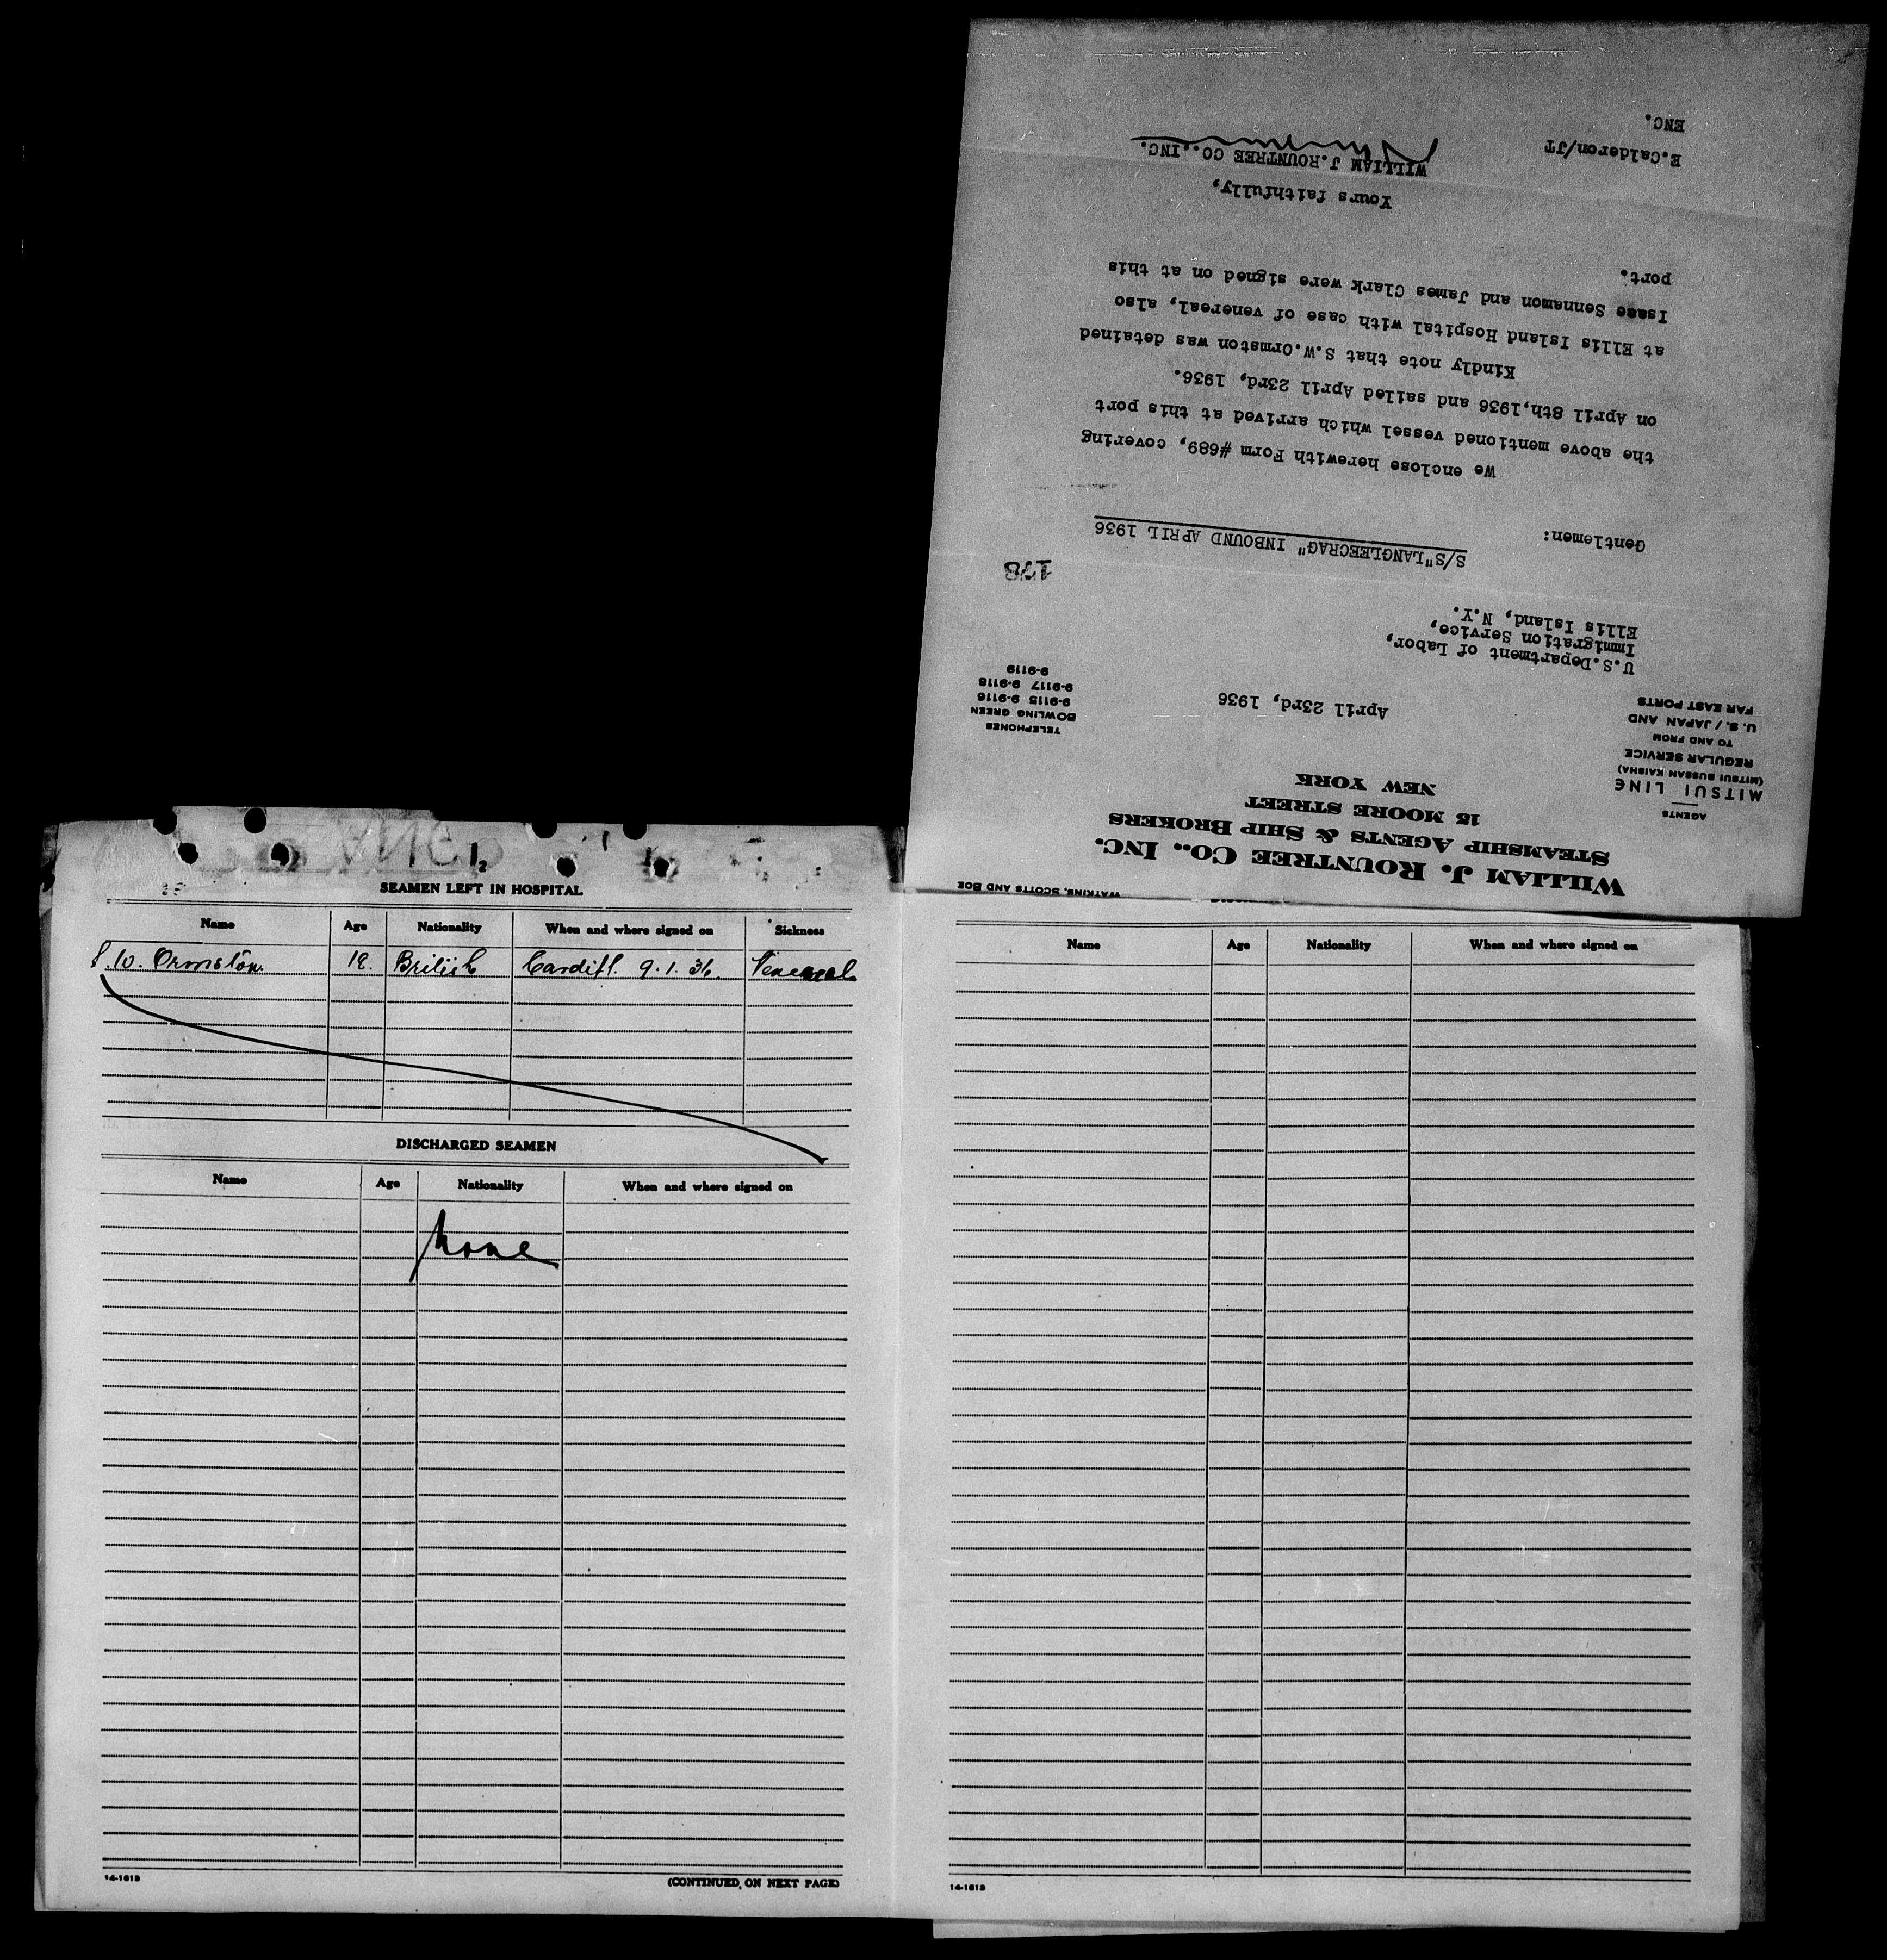 WATKINS, SCOTTS AND BOE
WILLIAM J. ROUNTREE CO., INC.
STEAMSHIP AGENTS & SHIP BROKERS
15 MOORE STREET
NEW YORK
AGENTS
MITSUI LINE
(MITSUI BUSSAN KAISHA)
REGULAR SERVICE
TO AND FROM
U. S. / JAPAN AND
FAR EAST PORTS
TELEPHONES
BOWLING GREEN
9-9115 9-9116
9-9117 9-9118
9-9119
April 23rd, 1936
U.S.Department of Labor,
Immigration Service,
Ellis Island, N.Y.
178
S/S"LANGLEECRAG" INBOUND APRIL 1936
Gentlemen:
We enclose herewith Form #689, covering
the above mentioned vessel which arrived at this port
on April 8th,1936 and sailed April 23rd, 1936.
Kindly note that S.W.Ormston was detained
at Ellis Island Hospital with case of venereal, also
Isaac Sennamon and James Clark were signed on at this
port.
Yours faithfully,
WILLIAM J.ROUNTREE CO.,INC.
E.Calderon/JT
ENC.
SEAMEN LEFT IN HOSPITAL
Name Age Nationality When and where signed on Sickness
S.W. Ormston. 18. British Cardiff. 9.1.36. Venereal
DISCHARGED SEAMEN
Name Age Nationality When and where signed on
None
14-1613 (CONTINUED ON NEXT PAGE)
Name Age Nationality When and where signed on
14-1613